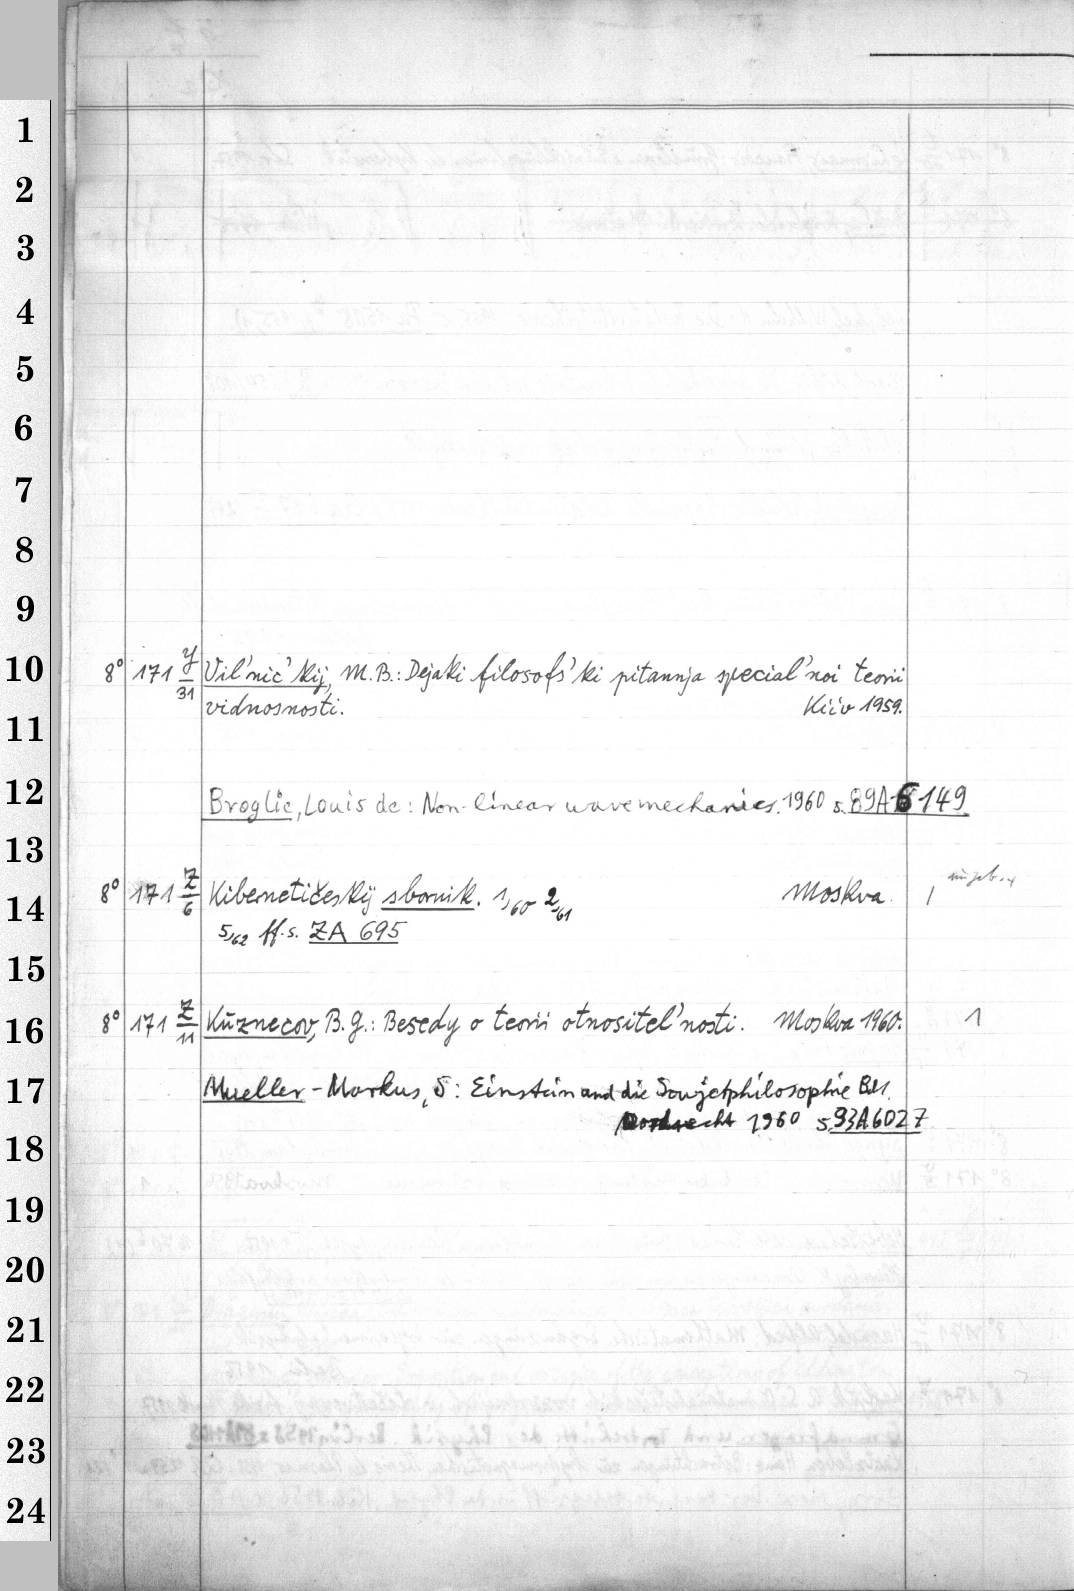 1
2
3
4
5
6
7
8
9
10
8° 171 y/31 Vil'nic'kij, M.B.: Dejaki filosofs'ki pitannja special'noi teorii
vidnosnosti. Kiiv 1959.
11
12
Broglie, Louis de: Non-linear wave mechanics. 1960 s. 89A6149
13
8° 171 Z/6 Kibernetičeskij sbornik. 1,60 2,61 Moskva. 1
14
5,62 ff. s. ZA 695
15
16
8° 171 Z/11 Kuznecov, B.g.: Besedy o teorii otnositel'nosti. Moskva 1960. 1
17
Mueller-Markus, S: Einstein and die Sowjetphilosophie Bd1.
Dordrecht 1960 s. 93A6027
18
19
20
21
22
23
24